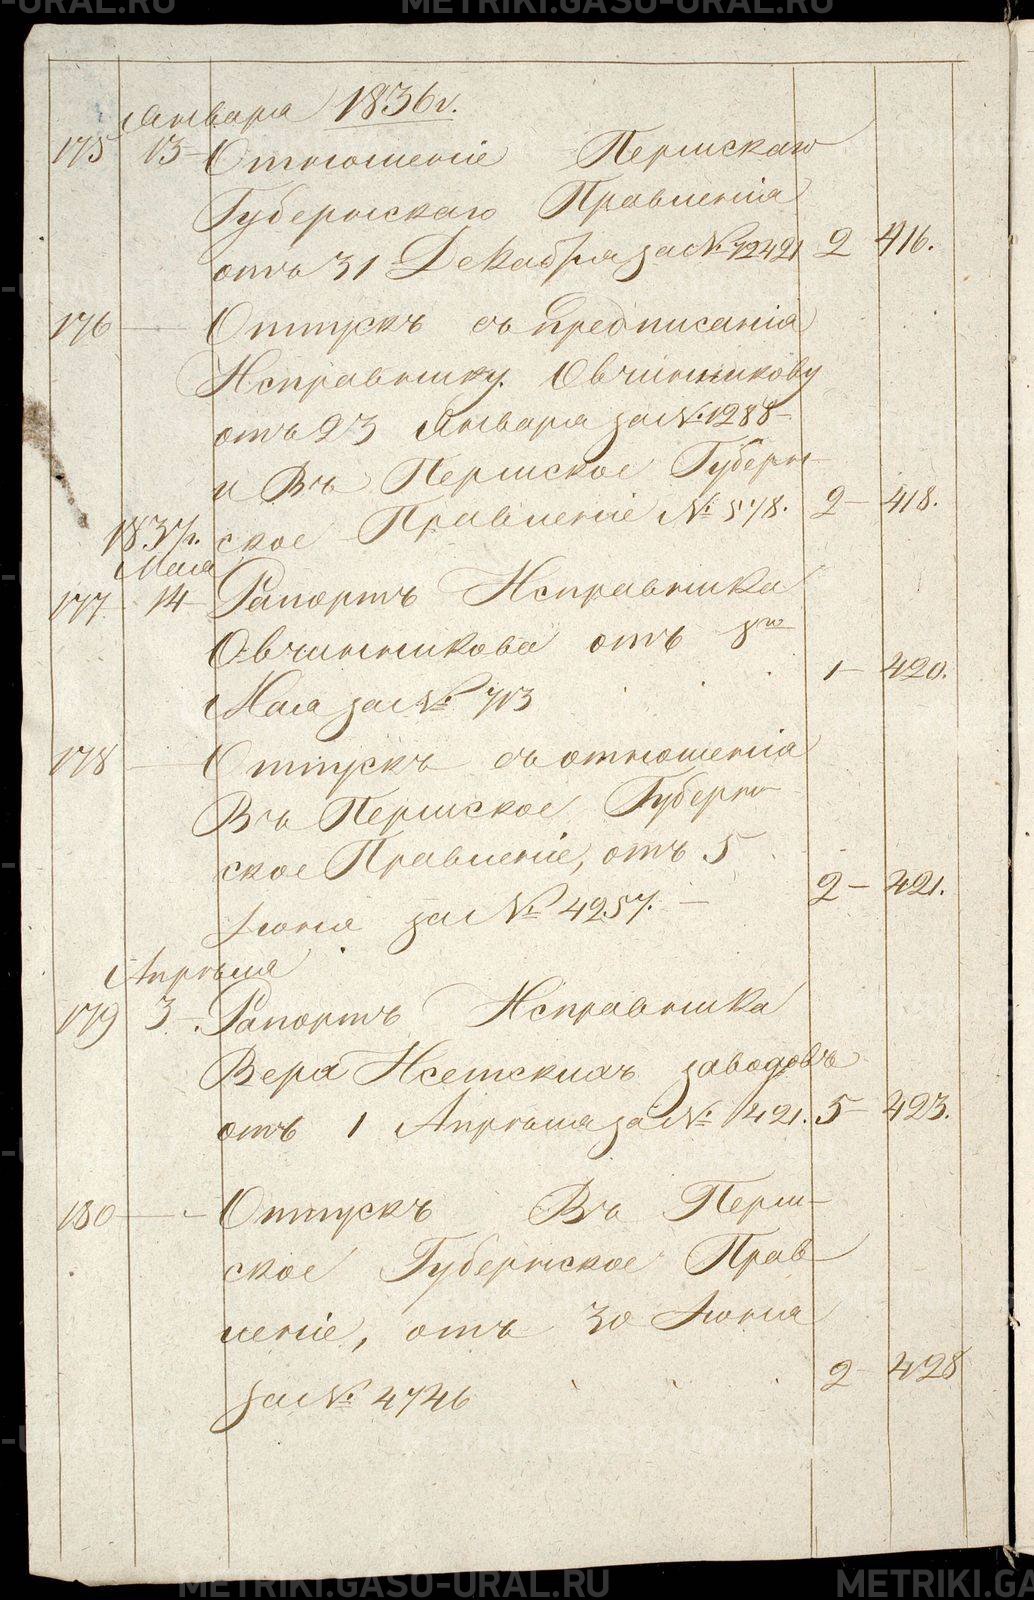 Января 1836 г.
175 13 Отношеніе Пермскаго
Губернскаго Правленія
отъ 31 Декабря за № 12421 2 416.
176 — Отпускъ съ предписанія
Исправнику Овчинникову
отъ 23 Января за № 1288 —
и Въ Пермское Губерн-
ское Правленіе № 578. 2 — 418.
1837 г.
Мая
177 14 — Рапортъ Исправника
Овчинникова отъ 8го
Мая за № 713 1 — 420.
178 — Отпускъ съ отношенія
Въ Пермское Губерн-
ское Правленіе, отъ 5
Іюня за № 4257. — 2 — 421.
Апрѣля
179 3 — Рапортъ Исправника
Верхъ Исетскихъ заводовъ
отъ 1 Апрѣля за № 1421. 5 — 423.
180 — Отпускъ Въ Перм-
ское Губернское Прав
леніе, отъ 30 Іюня
за № 4746 2 — 428
METRIKI.GASU-URAL.RU